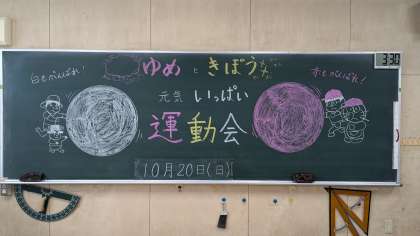 ゆめ と きぼう
白もがんばれ!
赤もがんばれ!
元気 いっぱい
運動会
10月20日(日)